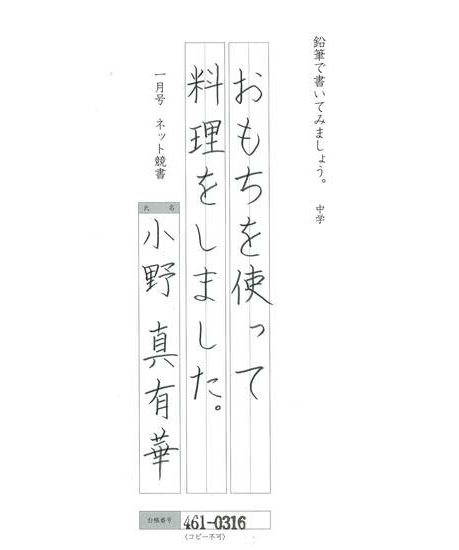 鉛筆で書いてみましょう。 中学
おもちを使って
料理をしました。
一月号 ネット競書
氏名
小野 真有華
台帳番号 461-0316
(コピー不可)